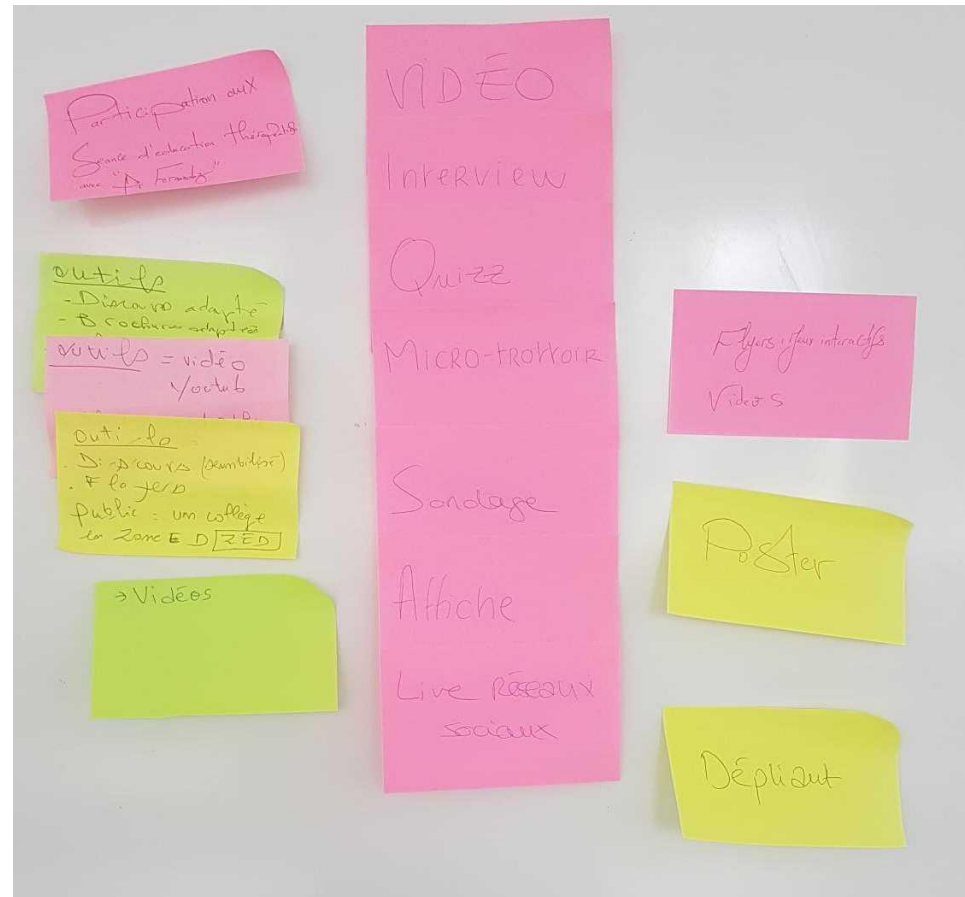 Participation aux
Séance d'éducation thérapeutique
avec "A
outils
- Discours adapté
- Brochure adaptée
outils = vidéo
Youtub
outils
. Discours (sensibilisé)
. Flayers
public : um collège
en Zone E D ZED
→ Vidéos
VIDÉO
Interview
Quizz
MICRO-TROTTOIR
Sondage
Affiche
Live Réseaux
sociaux
Flyers : jeux interactifs
Videos
Poster
Dépliant